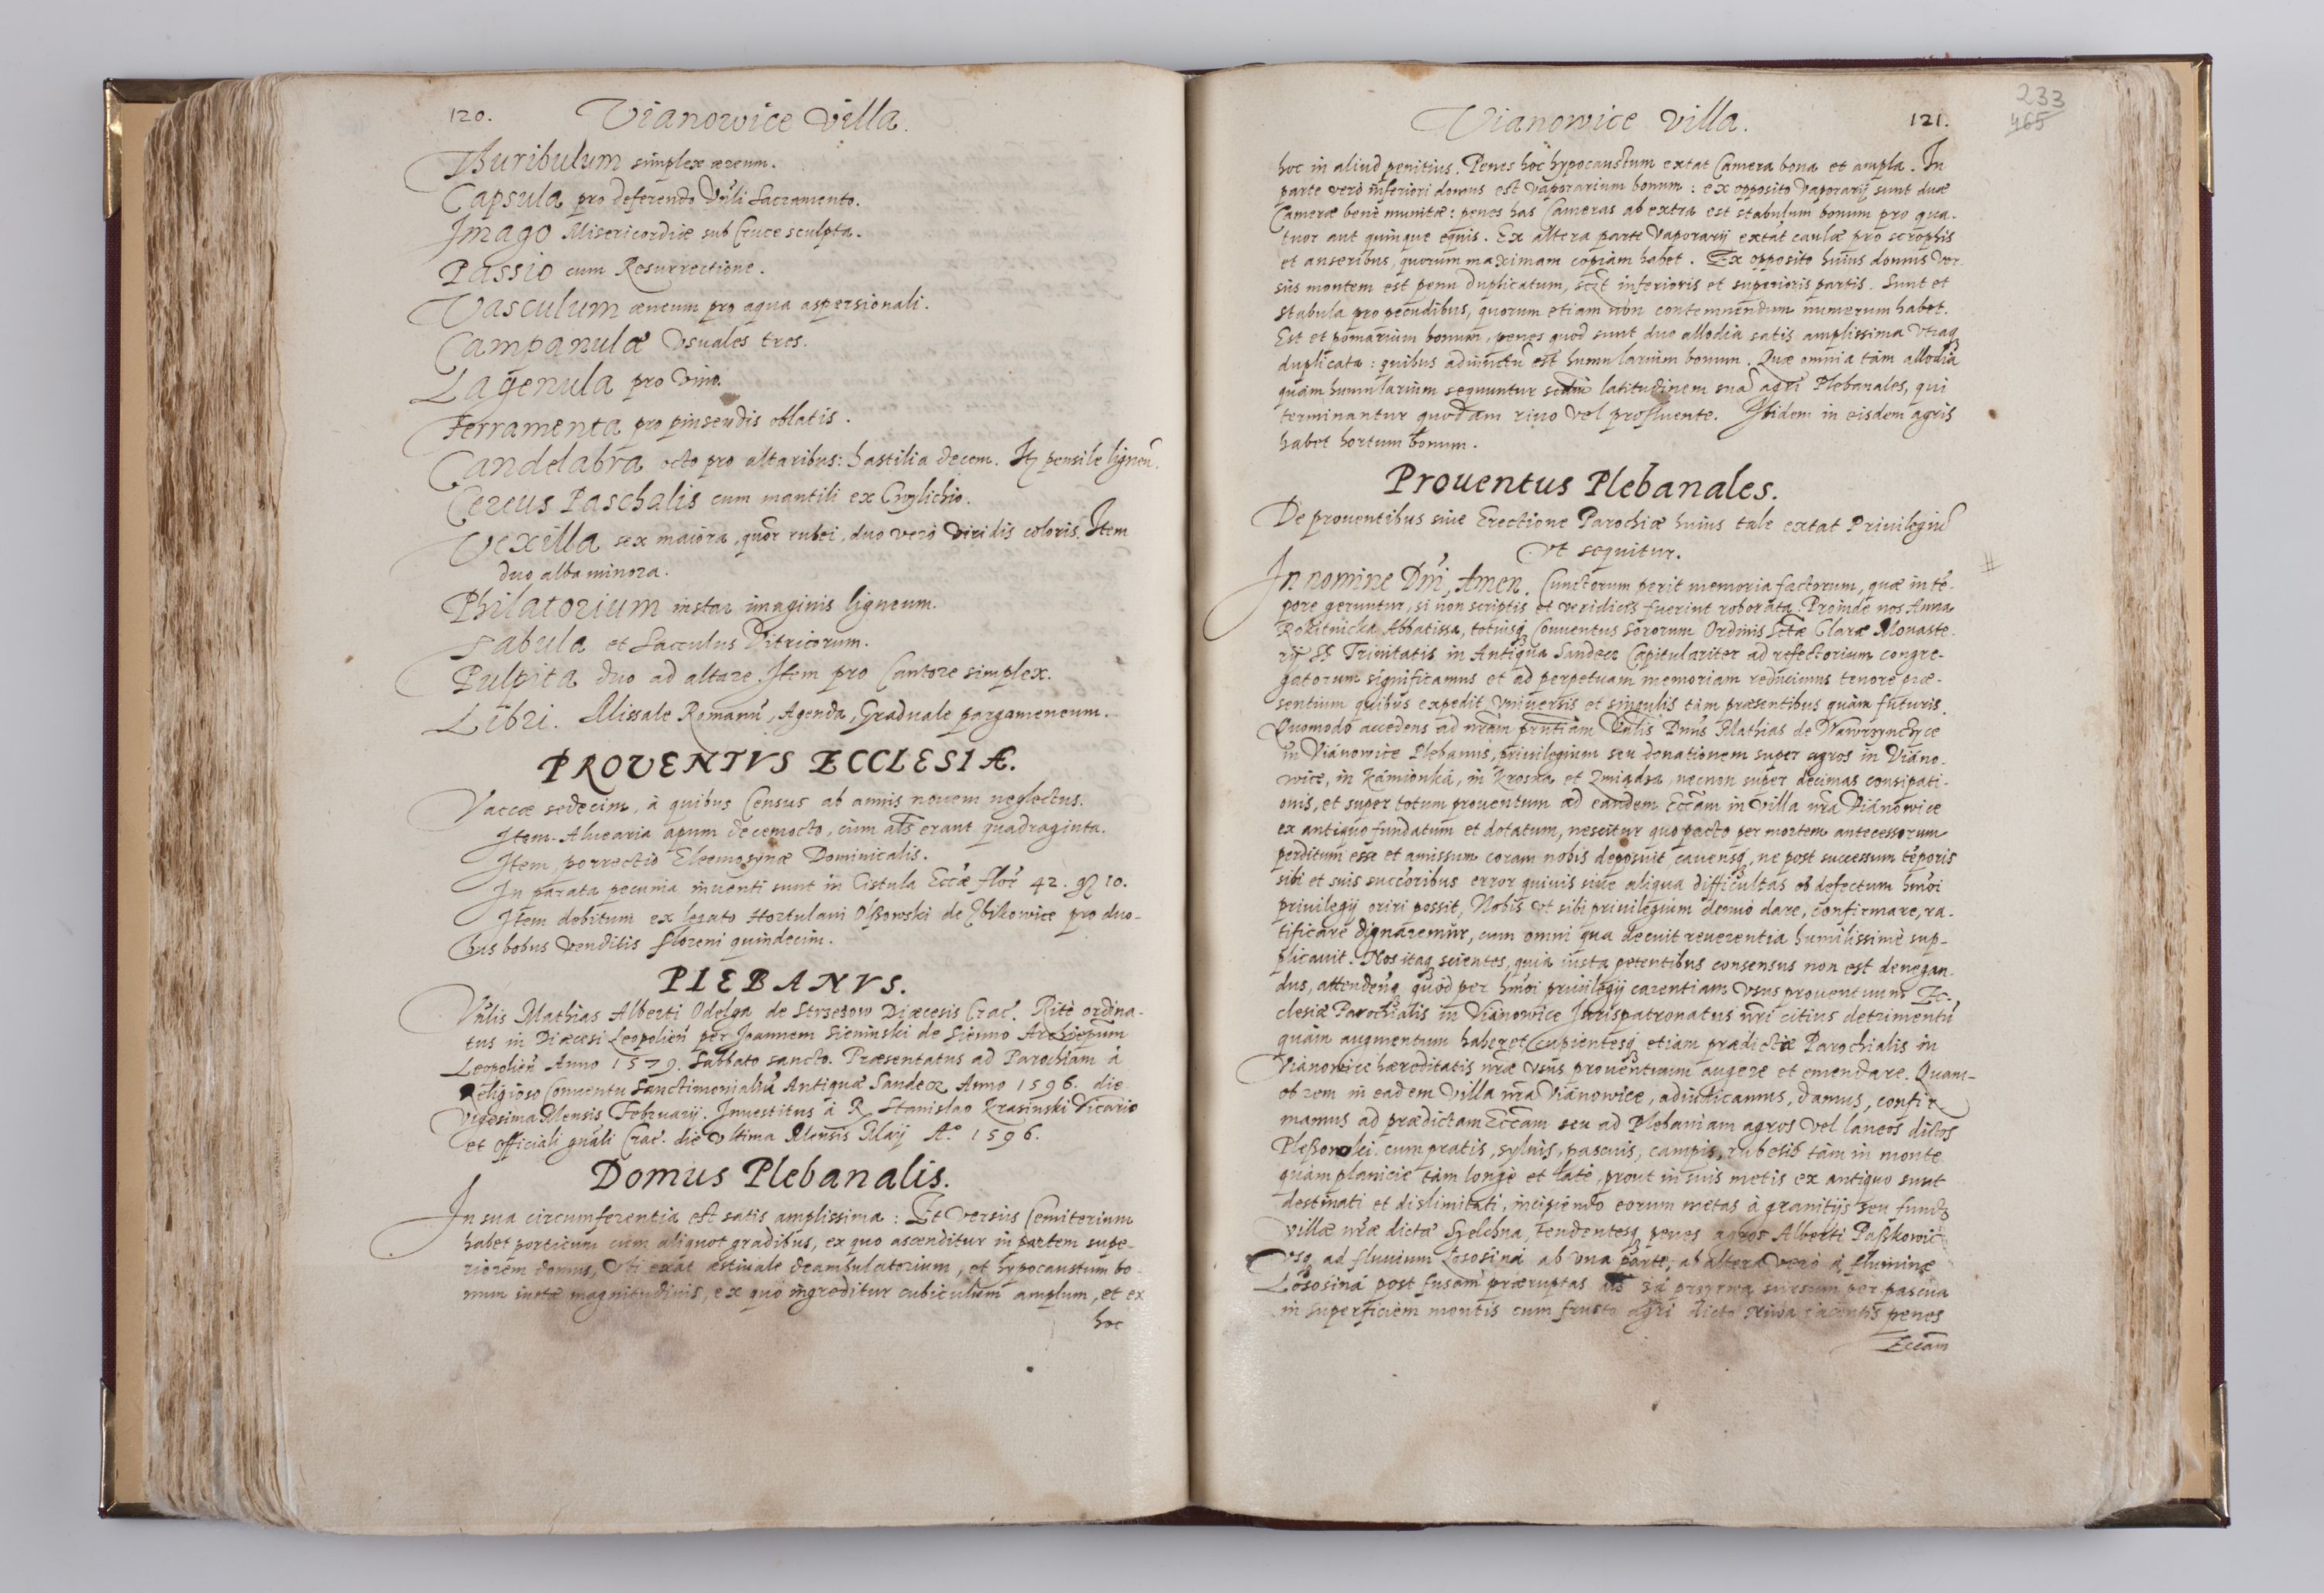 120. Vianowice Villa.
Thuribulum simplex æreum.
Capsula pro deferendo Vnli Sacramento.
Imago Misericordiæ sub Cruce sculpta.
Passio cum Resurrectione.
Vasculum æneum pro aqua aspersionali.
Campanulæ Vsuales tres.
Lagenula pro Vino.
Ferramenta pro pinsendis oblatis.
Candelabra octo pro altaribus: hastilia decem. Itꝫ pensile ligneū.
Cereus Paschalis cum mantili ex Cwylichio.
Vexilla sex maiora, quor rubei, duo verò viridis coloris. Item
duo alba minora.
Philatorium instar imaginis ligneum.
Tabula et Sacculus Vitricorum.
Pulpita duo ad altare. Item pro Cantore simplex.
Libri. Missale Romanū, Agenda, Graduale pargameneum.
PROVENTVS ECCLESIÆ.
Vaccæ sedecim, à quibus Census ab annis novem neglectus.
Item Aluearia apum decemocto, cùm als erant quadraginta.
Item, porrectio Eleemosynæ Dominicalis.
In parata pecunia inventi sunt in Cistula Eccæ flor 42. gꝛ 10.
Item debitum ex legato Hortulani Olßowski de Zbikowice pro duo-
bus bobus venditis floreni quindecim.
PLEBANVS.
Vnlis Mathias Alberti Odelga de Strzeżow Diæcesis Crac. Ritè ordina-
tus in Diæcesi Leopolień per Joannem Sieninski de Sienno Archiepum
Leopolień Anno 1579. Sabbato sancto. Præsentatus ad Parochiam à
Religioso Conventu Sanctimonialiū Antiquæ Sandecz Anno 1596. die
Vigesima Mensis Februarij. Investitus à R. Stanislao Krasinski Vicario
et Officiali gnali Crac. die vltima Mensis Maij A° 1596.
Domus Plebanalis.
In sua circumferentia est satis amplissima: Et versùs Cemiterium
habet porticum cum aliquot gradibus, ex quo ascenditur in partem supe-
riorem domus, vti exat æstiuale deambulatorium, et hypocaustum bo-
num iustæ magnitudinis, ex quo ingreditur cubiculum amplum, et ex
hoc
Vianowice villa. 121.
233
465
hoc in aliud penitius. Penes hoc hypocaustum extat Camera bona et ampla. In
parte verò inferiori domus est Vaporarium bonum: ex opposito Vaporarij sunt duæ
Cameræ benè munitæ: penes has Cameras ab extra est stabulum bonum pro qua-
tuor aut quinque equis. Ex altera parte Vaporarij extat caulæ pro scrophis
et anseribus, quorum maximam copiam habet. Ex opposito huius domus ver-
sùs montem est penu duplicatum, sczt inferioris et superioris partis. Sunt et
stabula pro pecudibus, quorum etiam non contemnendum numerum habet.
Est et pomarium bonum, penes quod sunt duo allodia satis amplissima vtraqꝫ
duplicata: quibus adiunctū est humularium bonum. Quæ omnia tàm allodia
quàm humularium sequuntur secdū latitudinem suā agri Plebanales, qui
terminantur quodam riuo vel profluente. Ibidem in eisdem agris
habet hortum bonum.
Prouentus Plebanales.
De prouentibus siue Erectione Parochiæ huius tale extat Priuilegiū
vt sequitur.
#
In nomine Dni, Amen. Cunctorum perit memoria factorum, quæ in tē-
pore geruntur, si non scriptis et veridicis fuerint roborata. Proinde nos Anna
Rokitnicka Abbatissa, totiusqꝫ Conuentus Sororum Ordinis Sctæ Claræ Monaste-
rij SS Trinitatis in Antiqua Sandecz Capitulariter ad refectorium congre-
gatorum significamus et ad perpetuam memoriam reducimus tenore præ-
sentium quibus expedit, Vniuersis et singulis tàm præsentibus quàm futuris.
Quomodò accedens ad nram pnntiam Vnlis Dnus Mathias de Wawrzynczyce
in Viánowice Plebanus, priuilegium seu donationem super agros in Viáno-
wice, in Kámionká, in Krosna et Zmiądza, necnon super decimas consipati-
onis, et super totum prouentum ad eandem Eccām in Villa nra Viánowice
ex antiquo fundatum et dotatum, nescitur quo pacto per mortem antecessorum
perditum esse et amissum coram nobis deposuit cauensqꝫ, ne post successum tēporis
sibi et suis succoribus error quiuis siue aliqua difficultas ob defectum hmōi
priuilegij oriri possit, Nobis vt sibi priuilegium denuò dare, confirmare, ra-
tificare dignaremur, cum omni qua decuit reuerentia humilissimè sup-
plicauit. Nos itaqꝫ scientes, quia iusta petentibus consensus non est denegan-
dus, attendenqꝫ quòd per hmōi priuilegij carentiam vsus prouentuum Ec-
clesiæ Parochialis in Viánowice Jurispatronatus nri citius detrimentū
quàm augmentum haberet, cupientesqꝫ etiam prædictæ Parochialis in
Vianowice hæreditatis nræ vsus prouentuum augere et emendare. Quam-
ob rem in eadem villa nra Viánowice, adiudicamus, damus, confir-
mamus ad prædictam Eccām seu ad Plebaniam agros vel laneos dictos
Pleßowski cum pratis, syluis, pascuis, campis, rubetis tàm in monte
quàm planicie tàm longè et latè, prout in suis metis ex antiquo sunt
destinati et dislimitati, incipiendo eorum metas à granitijs seu fundo
villæ nræ dictæ Szelchna, tendentesqꝫ penes agros Alberti Paßkowic
vsqꝫ ad fluuium Łososiná ab vna parte, ab altera verò à flumine
Lososiná post fusam præruptas als zá przyrwą sursum per pascua
in superficiem montis cum frusto agri dicto Niwa iacentis penes
Eccām